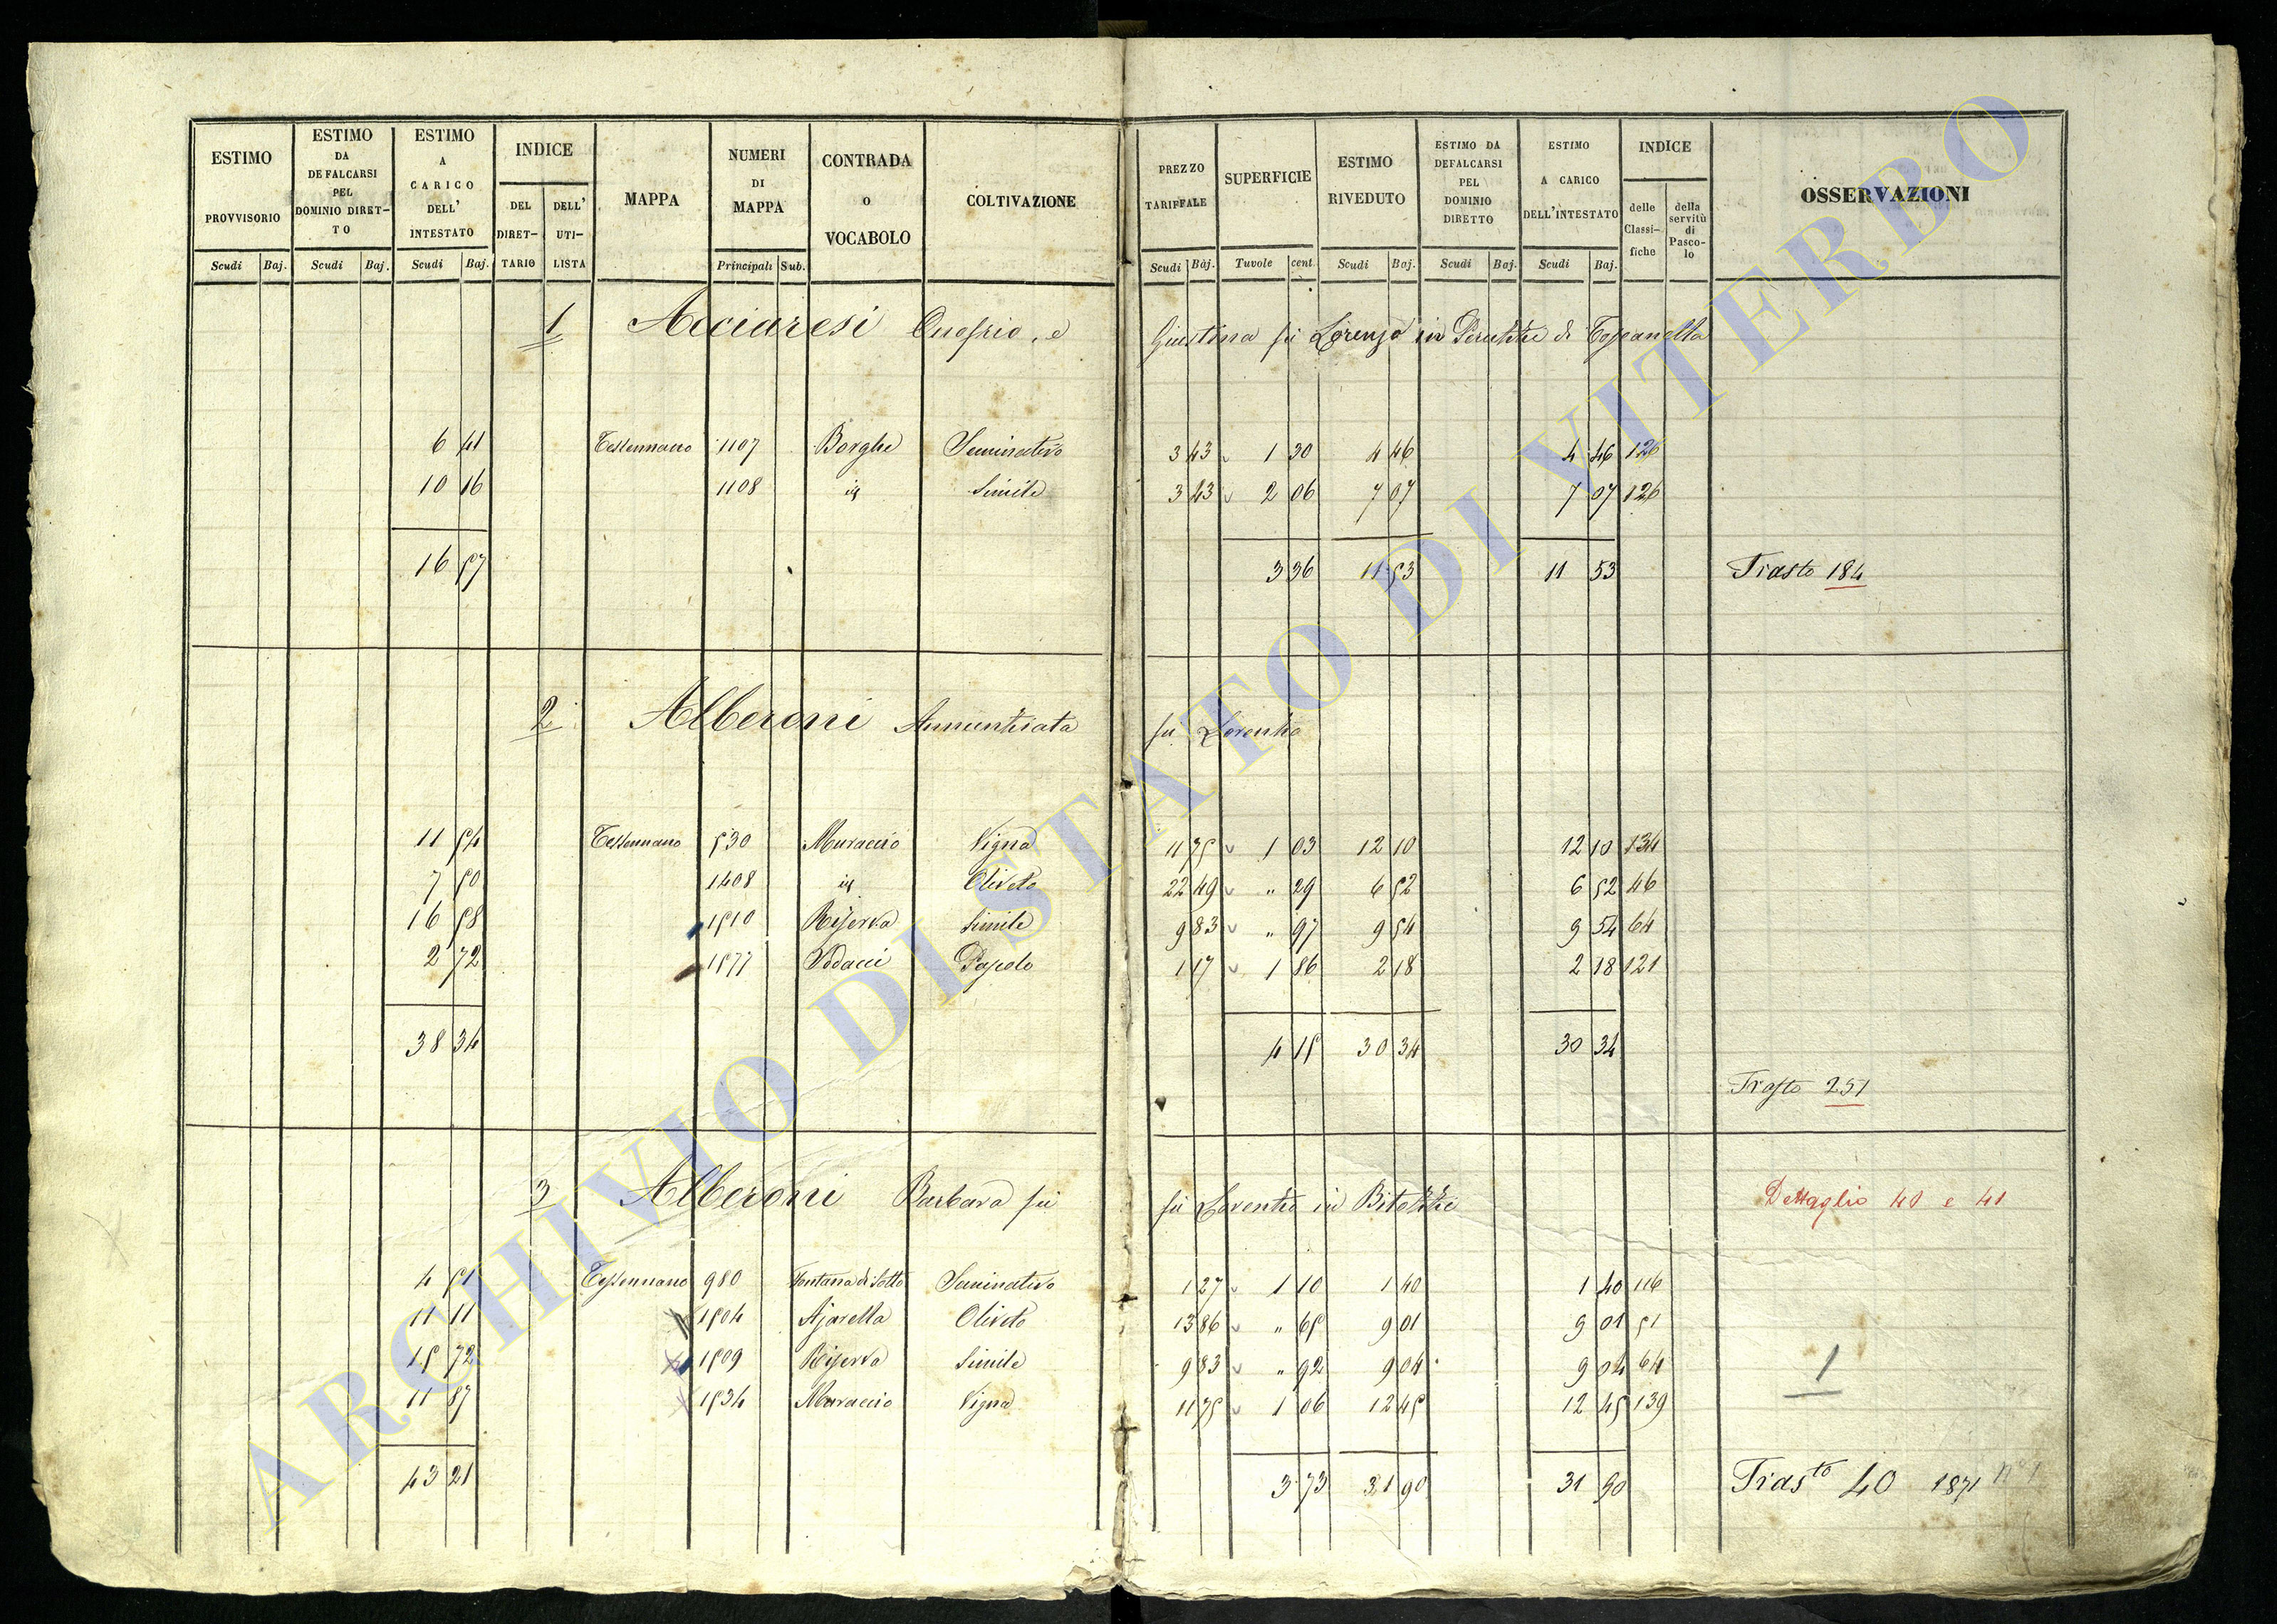 ESTIMO PROVVISORIO
ESTIMO DA DEFALCARSI PEL DOMINIO DIRET-TO
ESTIMO A CARICO DELL' INTESTATO
INDICE
DEL DIRET-TARIO
DELL' UTI-LISTA
MAPPA
NUMERI DI MAPPA
CONTRADA O VOCABOLO
COLTIVAZIONE
PREZZO TARIFFALE
SUPERFICIE
ESTIMO RIVEDUTO
ESTIMO DA DEFALCARSI PEL DOMINIO DIRETTO
ESTIMO A CARICO DELL'INTESTATO
INDICE
delle Classi-fiche
della servitù di Pasco-lo
OSSERVAZIONI
Scudi Baj. Scudi Baj. Scudi Baj. Principali Sub. Scudi Baj. Tavole cent. Scudi Baj. Scudi Baj. Scudi Baj.
1 Acciaresi Onofrio, e Giustina fu Lorenzo in di Toscanella
6 41 Tessennano 1107 Borghe Seminativo 3 43 1 30 4 46 4 46 126
10 16 1108 id Simile 3 43 2 06 7 07 7 07 126
16 57 3 36 11 53 11 53 Trasto 184
2 Alberoni Annunziata fu Lorenzo
11 54 Tessennano 530 Muraccio Vigna 11 75 1 03 12 10 12 10 134
7 50 1408 id Oliveto 22 49 " 29 6 52 6 52 46
16 58 1510 Riserva Simile 9 83 " 97 9 54 9 54 64
2 72 1577 Sodacci Pascolo 1 17 1 86 2 18 2 18 121
38 34 4 15 30 34 30 34
Trasto 251
3 Alberoni Barbara fu fu Lorenzo in
Dettaglio 40 e 41
4 51 Tessennano 980 Fontana di Sotto Seminativo 1 27 1 10 1 40 1 40 116
11 11 1504 Ajarella Oliveto 13 86 " 65 9 01 9 01 51
15 72 1509 Riserva Simile 9 83 " 92 9 04 9 04 64
1
11 87 1534 Muraccio Vigna 11 75 1 06 12 45 12 45 139
43 21 3 73 31 90 31 90 Trasto 40 1871 n° 1
ARCHIVIO DI STATO DI VITERBO